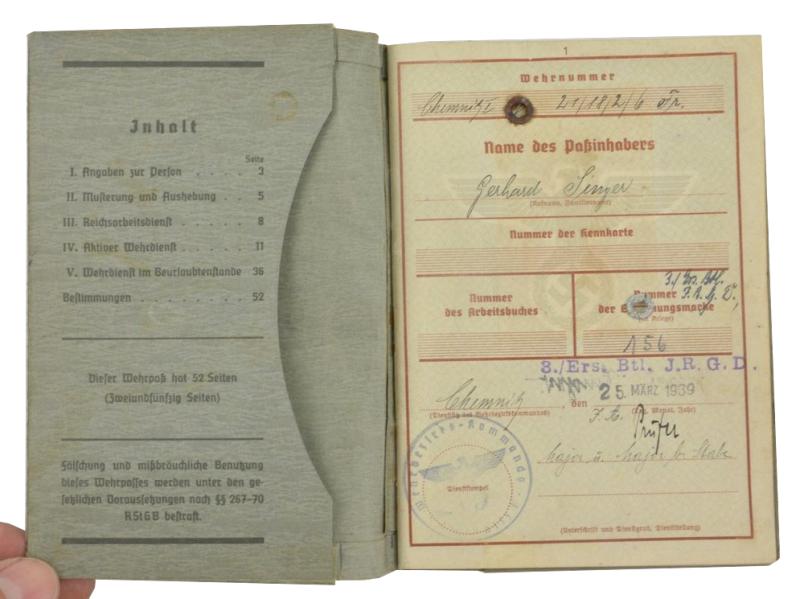 Inhalt
Seite
I. Angaben zur Person . . . . 3
II. Musterung und Aushebung . . 5
III. Reichsarbeitsdienst . . . . . . 8
IV. Aktiver Wehrdienst . . . . . . 11
V. Wehrdienst im Beurlaubtenstande 36
Bestimmungen . . . . . . . . 52
Dieser Wehrpaß hat 52 Seiten
(Zweiundfünfzig Seiten)
Fälschung und mißbräuchliche Benutzung
dieses Wehrpasses werden unter den ge-
setzlichen Voraussetzungen nach §§ 267-70
RStGB bestraft.
1
Wehrnummer
Chemnitz I 21/18/2/6
Name des Paßinhabers
Gerhard Singer
(Rufname, Familienname)
Nummer der Kennkarte
Nummer
des Arbeitsbuches
3./Ers. Btl.
Nummer
der
156
3./Ers. Btl. J.R.G.D.
Chemnitz, den 25. MÄRZ 1939
Prüfer
Major u. Major b. Stabe
Wehrbezirks-Kommando
Dienststempel
(Unterschrift und Dienstgrad, Dienststellung)